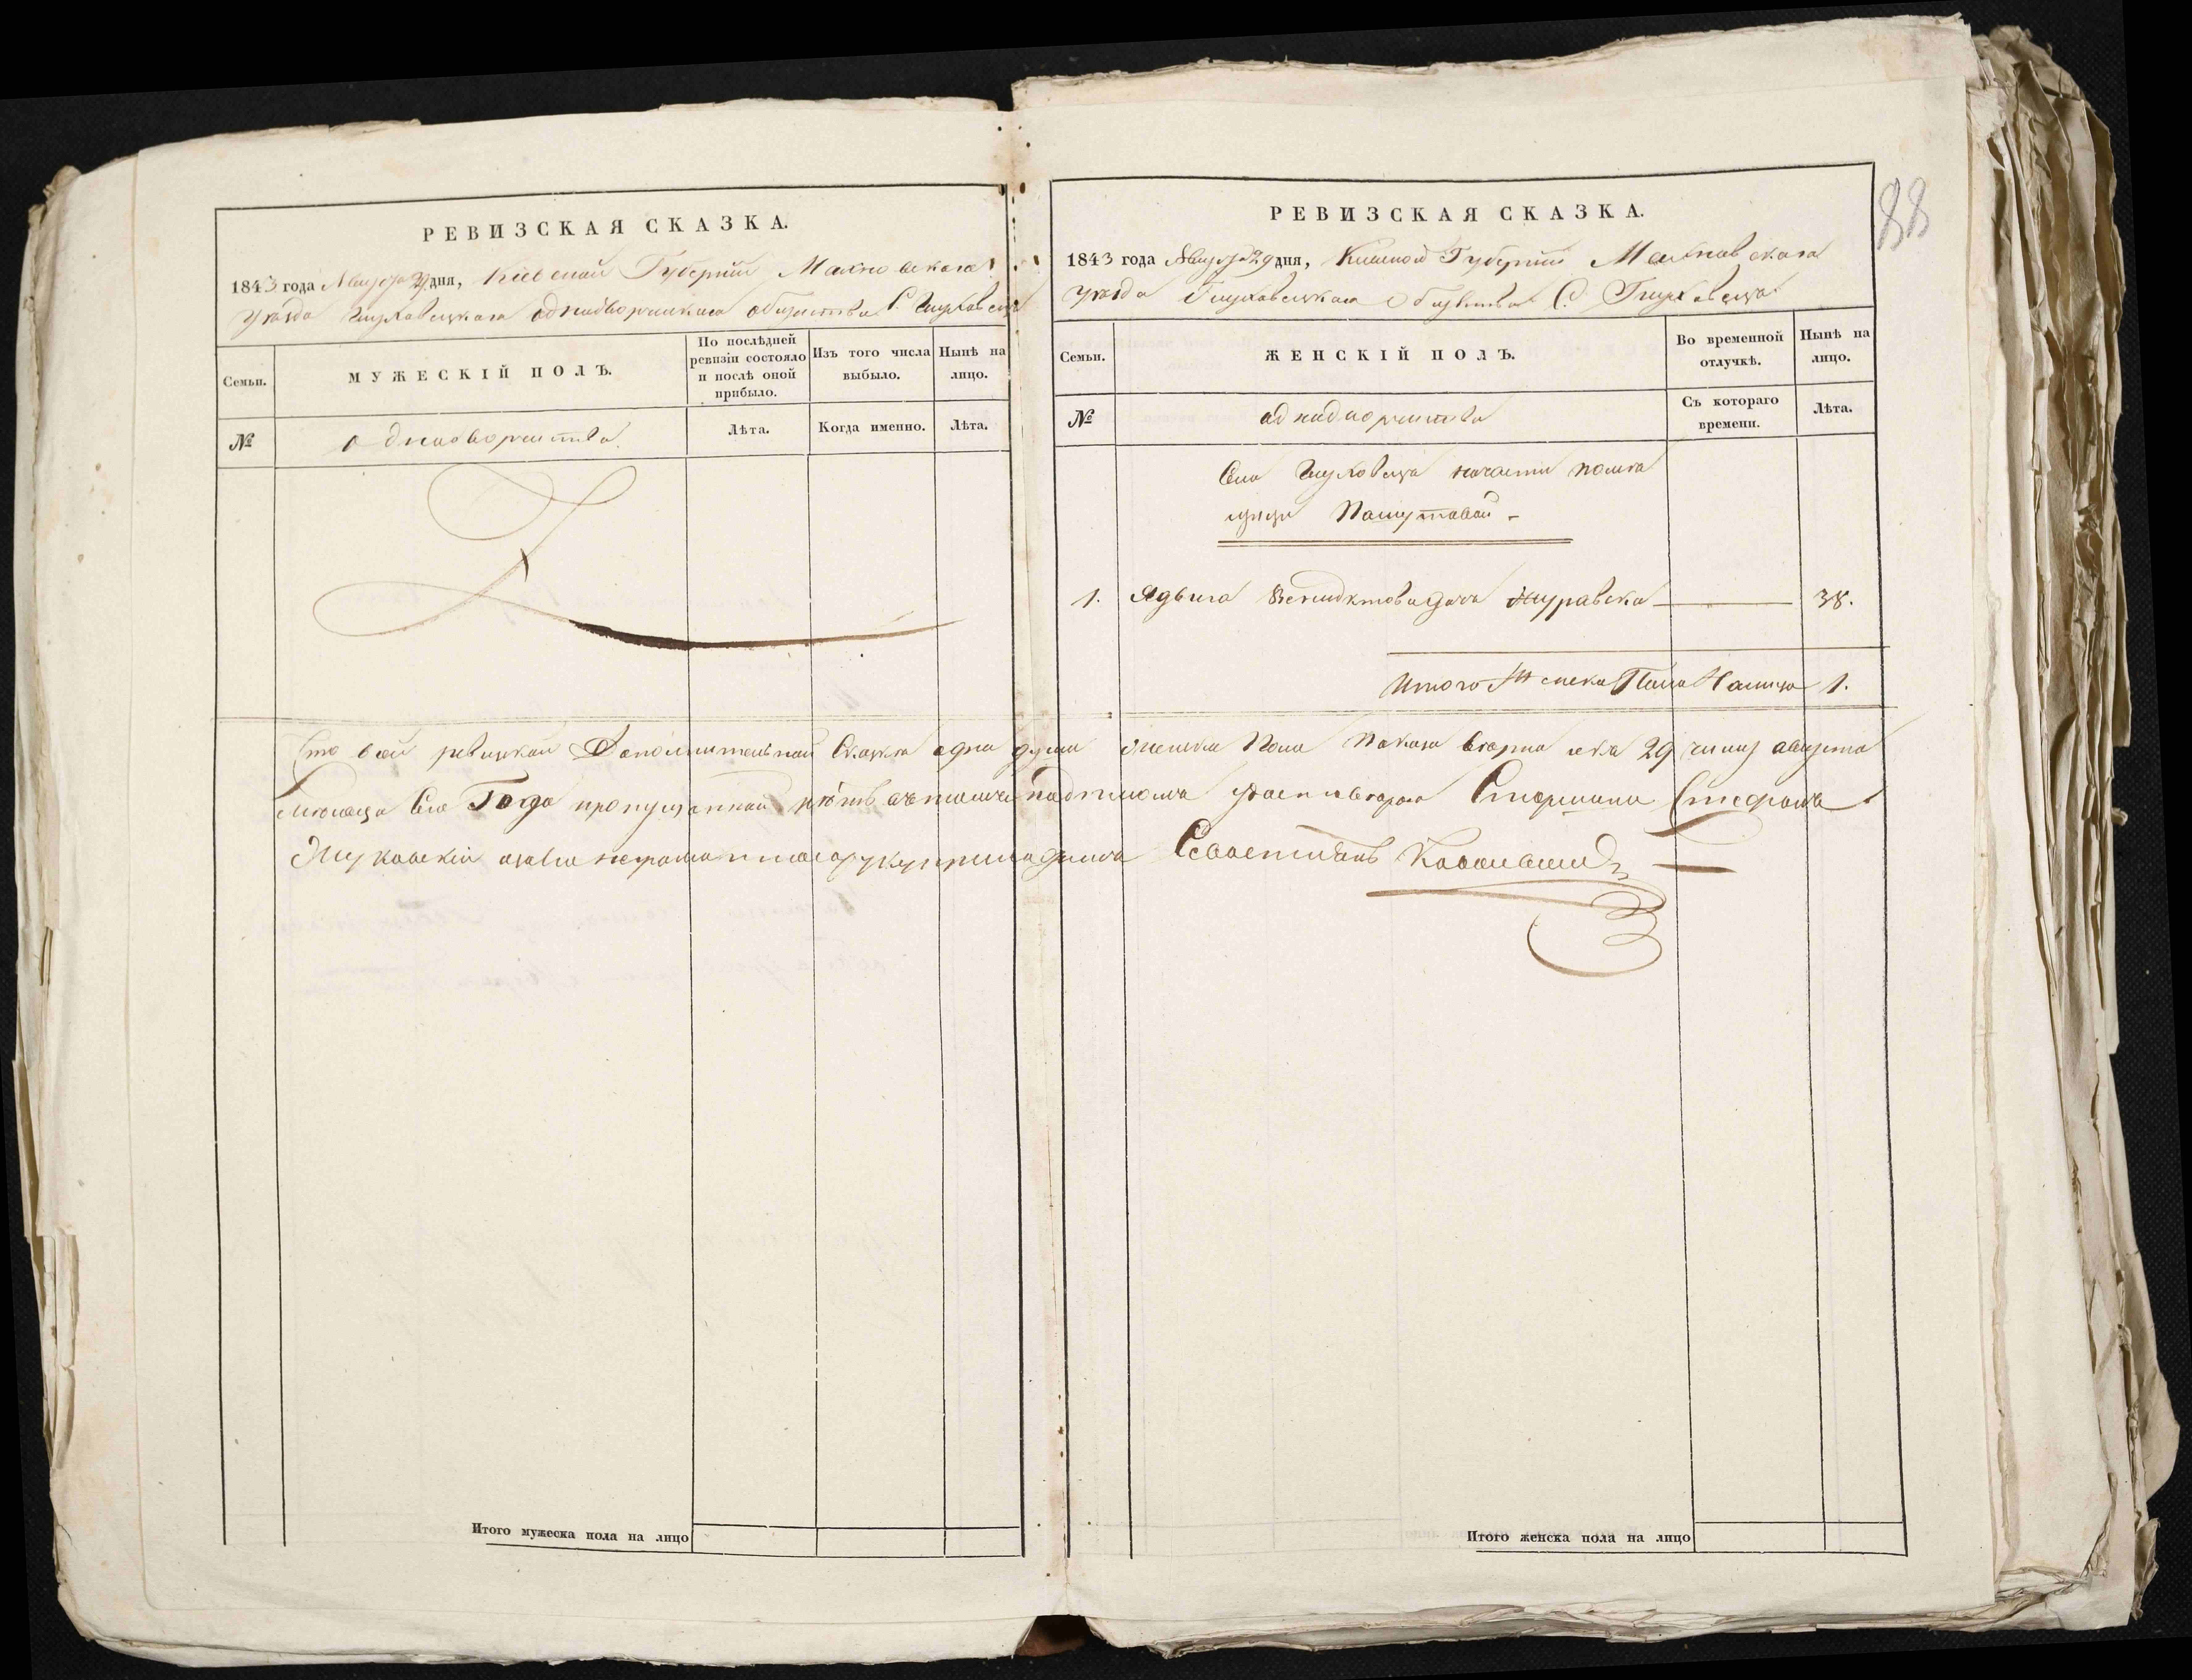 РЕВИЗСКАЯ СКАЗКА.
1843 года Августа 29 дня, Кіевской Губерніи Махновскаго
уезда Глуховецкаго однодворческаго общества С. Глуховець
Семьи.
МУЖЕСКІЙ ПОЛЪ.
По послѣдней ревизіи состояло и послѣ оной прибыло.
Изъ того числа выбыло.
Нынѣ на лицо.
№
однодворчества
Лѣта.
Когда именно.
Лѣта.
Итого мужеска пола на лицо
88
РЕВИЗСКАЯ СКАЗКА.
1843 года Августа 29 дня, Киевской Губерніи Махновскаго
уезда Глуховецкаго Общества С. Глуховецъ
Семьи.
ЖЕНСКІЙ ПОЛЪ.
Во временной отлучкѣ.
Нынѣ на лицо.
№
однодворчества
Съ котораго времени.
Лѣта.
Села Глуховца части поме
щици
1. Ядвига Бенидиктова дочь Журавска 38.
Итого женска Пола Налицо 1.
Что в сей ревизкой Дополнительной Сказке одна душа женска Пола 29 числа августа
месяца Сего Года пропущенной нѣтъ Старшина Стефанъ
Жуковскій
Итого женска пола на лицо